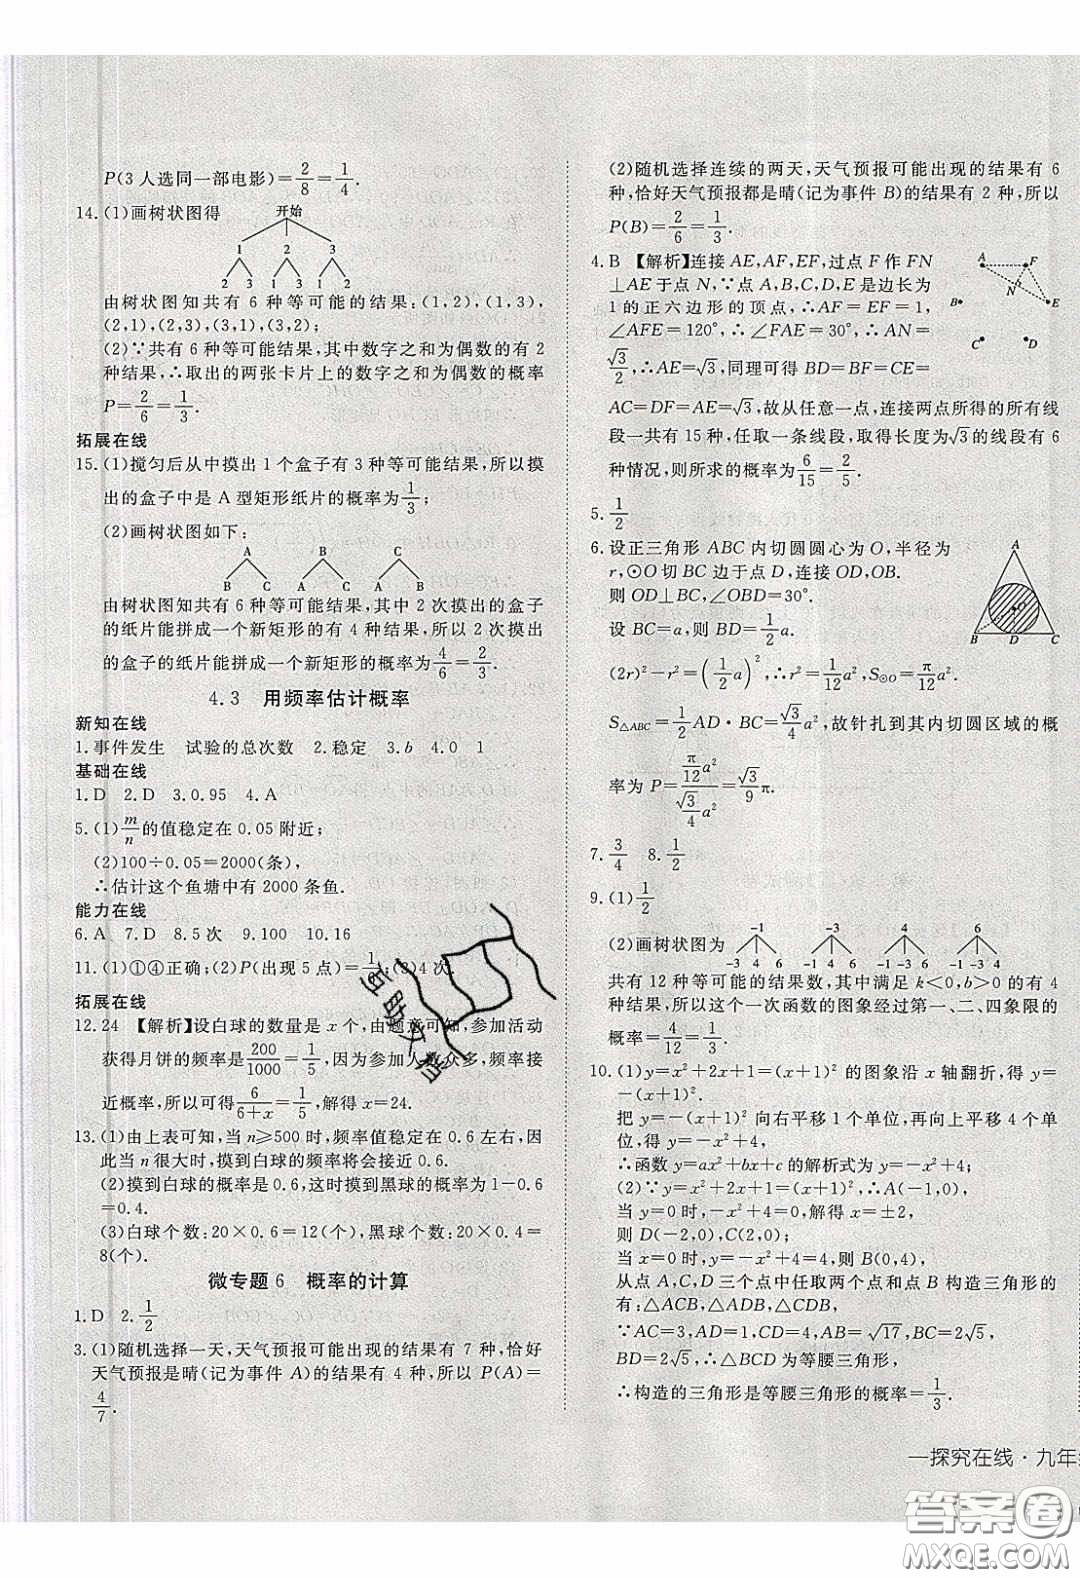 P(3人选同一部电影)=2/8=1/4.
14.(1)画树状图得
开始
1 2 3
2 3 1 3 1 2
由树状图知共有6种等可能的结果:(1,2),(1,3),
(2,1),(2,3),(3,1),(3,2);
(2)∵共有6种等可能结果,其中数字之和为偶数的有2
种结果,∴取出的两张卡片上的数字之和为偶数的概率
P=2/6=1/3.
拓展在线
15.(1)搅匀后从中摸出1个盒子有3种等可能结果,所以摸
出的盒子中是A型矩形纸片的概率为1/3;
(2)画树状图如下:
A B C
B C A C A B
由树状图知共有6种等可能结果,其中2次摸出的盒子
的纸片能拼成一个新矩形的有4种结果,所以2次摸出
的盒子的纸片能拼成一个新矩形的概率为4/6=2/3.
4.3 用频率估计概率
新知在线
1.事件发生 试验的总次数 2.稳定 3.b 4.0 1
基础在线
1.D 2.D 3.0.95 4.A
5.(1)m/n的值稳定在0.05附近;
(2)100÷0.05=2000(条),
∴估计这个鱼塘中有2000条鱼.
能力在线
6.A 7.D 8.5次 9.100 10.16
11.(1)①④正确;(2)P(出现5点)=1/6;(3)4次.
拓展在线
12.24 【解析】设白球的数量是x个,由题意可知,参加活动
获得月饼的频率是200/1000=1/5,因为参加人数众多,频率接
近概率,所以可得6/(6+x)=1/5,解得x=24.
13.(1)由上表可知,当n≥500时,频率值稳定在0.6左右,因
此当n很大时,摸到白球的频率将会接近0.6.
(2)摸到白球的概率是0.6,这时摸到黑球的概率是1-0.6
=0.4.
(3)白球个数:20×0.6=12(个),黑球个数:20×0.4=
8(个).
微专题6 概率的计算
1.D 2.1/2
3.(1)随机选择一天,天气预报可能出现的结果有7种,恰好
天气预报是晴(记为事件A)的结果有4种,所以P(A)=
4/7.
(2)随机选择连续的两天,天气预报可能出现的结果有6
种,恰好天气预报都是晴(记为事件B)的结果有2种,所以
P(B)=2/6=1/3.
4.B 【解析】连接AE,AF,EF,过点F作FN
⊥AE于点N,∵点A,D,E是边长为
1的正六边形的顶点,∴AF=EF=1,
∠AFE=120°,∴∠FAE=30°,∴AN=
√3/2,∴AE=√3,同理可得BD=BF=CE=
AC=DF=AE=√3,故从任意一点,连接两点所得的所有线
段一共有15种,任取一条线段,取得长度为√3的线段有6
种情况,则所求的概率为6/15=2/5.
A F N B E C D
5.1/2
6.设正三角形ABC内切圆圆心为O,半径为
r,⊙O切BC边于点D,连接OD,OB.
则OD⊥BC,∠OBD=30°.
设BC=a,则BD=1/2a.
A O B D C
(2r)²-r²=(1/2a)²,∴r²=1/12a²,S⊙O=π/12a²,
S△ABC=1/2AD·BC=√3/4a²,故针扎到其内切圆区域的概
率为P=(π/12a²)/(√3/4a²)=√3/9π.
7.3/4 8.1/2
9.(1)1/2
(2)画树状图为
-1 -3 4 6
-3 4 6 -1 4 6 -1 -3 6 -1 -3 4
共有12种等可能的结果数,其中满足k<0,b>0的有4
种结果,所以这个一次函数的图象经过第一、二、四象限的
概率=4/12=1/3.
10.(1)y=x²+2x+1=(x+1)²的图象沿x轴翻折,得y=
-(x+1)².
把y=-(x+1)²向右平移1个单位,再向上平移4个单
位,得y=-x²+4,
∴函数y=ax²+bx+c的解析式为y=-x²+4;
(2)∵y=x²+2x+1=(x+1)²,∴A(-1,0),
当y=0时,-x²+4=0,解得x=±2,
则D(-2,0),C(2,0);
当x=0时,y=-x²+4=4,则B(0,4),
从点A,C,D三个点中任取两个点和点B构造三角形的
有:△ACB,△ADB,△CDB,
∵AC=3,AD=1,CD=4,AB=√17,BC=2√5,
BD=2√5,∴△BCD为等腰三角形,
∴构造的三角形是等腰三角形的概率=1/3.
一探究在线·九年
互助文档
答案圈
MXQE.COM